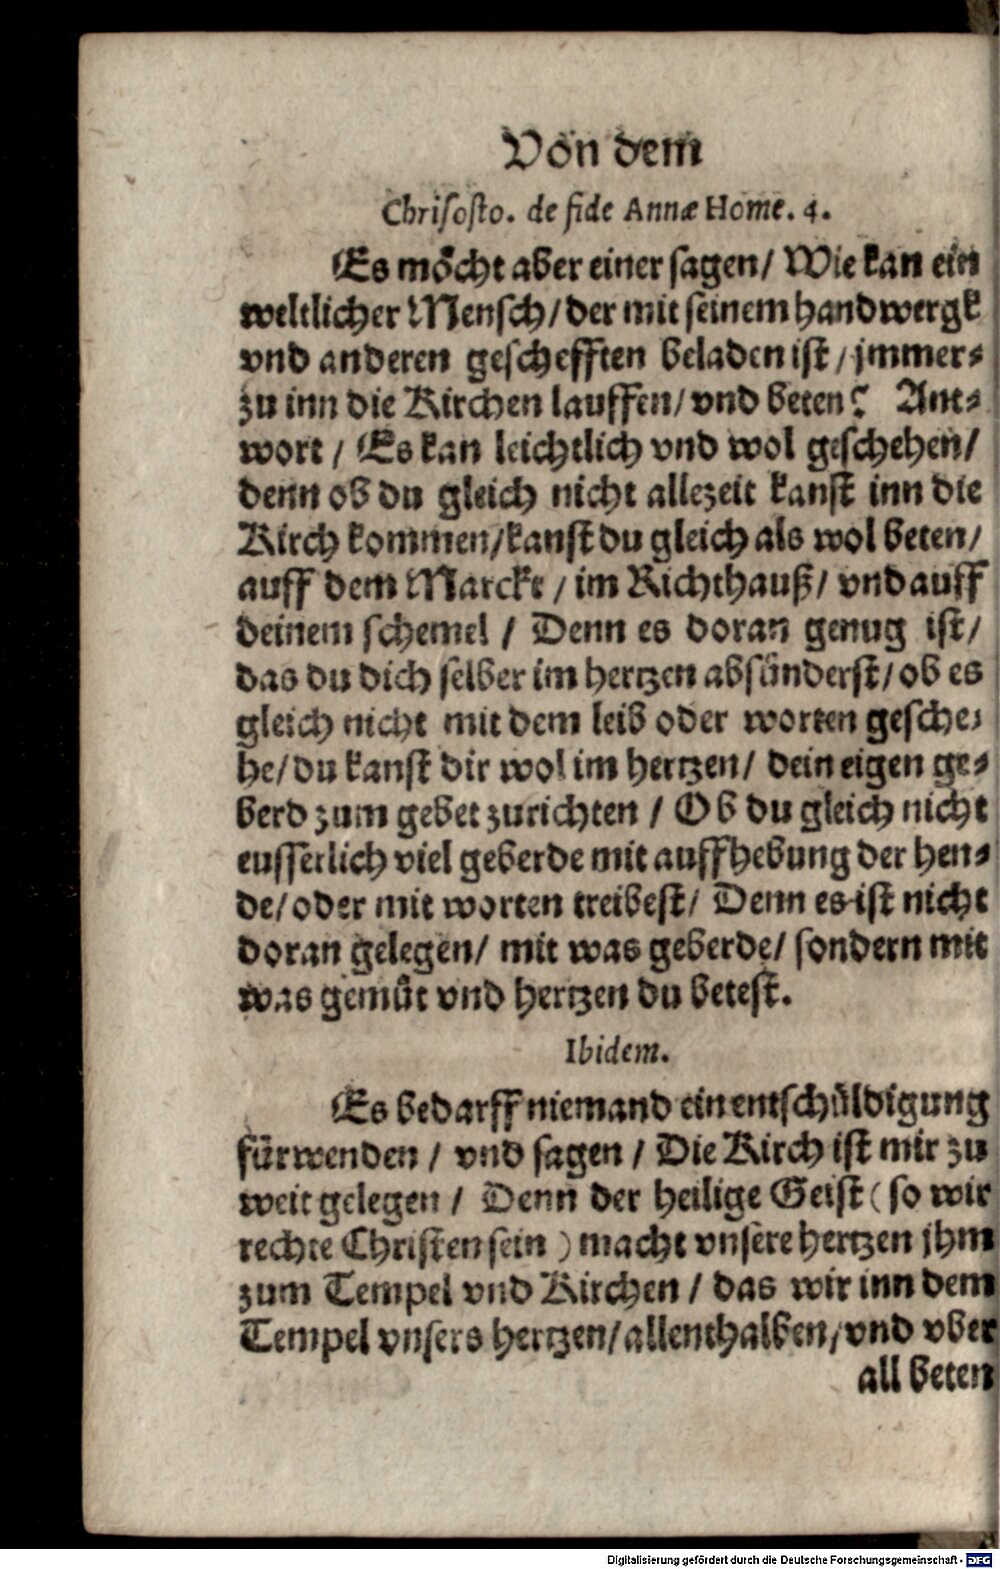 Von dem
Chrisosto. de fide Annæ Home. 4.
Es möcht aber einer sagen/ Wie kan ein
weltlicher Mensch/ der mit seinem handwergk
vnd anderen geschefften beladen ist/ jmmer⸗
zu inn die Kirchen lauffen/ vnd beten? Ant⸗
wort/ Es kan leichtlich vnd wol geschehen/
denn ob du gleich nicht allezeit kanst inn die
Kirch kommen/ kanst du gleich als wol beten/
auff dem Marckt/ im Richthauß/ vnd auff
deinem schemel/ Denn es doran genug ist/
das du dich selber im hertzen absünderst/ ob es
gleich nicht mit dem leib oder worten gesche⸗
he/ du kanst dir wol im hertzen/ dein eigen ge⸗
berd zum gebet zurichten/ Ob du gleich nicht
eusserlich viel geberde mit auffhebung der hen⸗
de/ oder mit worten treibest/ Denn es ist nicht
doran gelegen/ mit was geberde/ sondern mit
was gemüt vnd hertzen du betest.
Ibidem.
Es bedarff niemand ein entschüldigung
fürwenden/ vnd sagen/ Die Kirch ist mir zu
weit gelegen/ Denn der heilige Geist (so wir
rechte Christen sein) macht vnsere hertzen jhm
zum Tempel vnd Kirchen/ das wir inn dem
Tempel vnsers hertzen/ allenthalben/ vnd vber
all beten
Digitalisierung gefördert durch die Deutsche Forschungsgemeinschaft - DFG